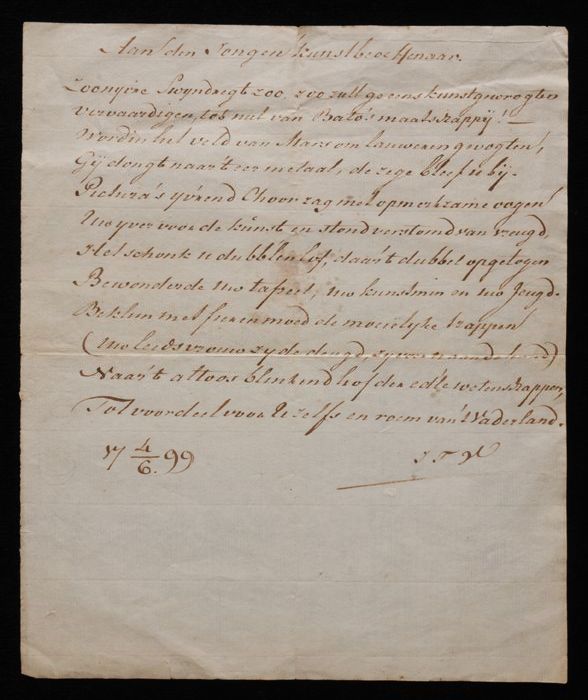 Aan den Jongen kunstbeoeffenaar.
Zoo nyvre Swyndregt zoo, zoo zult ge eens kunstgewrogten
vervaardigen, tot nut van Bato's maatschappij! —
Word in het veld van Mars om lauweren gevogten,
Gij dongt naar 't eermetaal, de zege bleef u bij.
Pictura's yv'rend Choor zag met opmerkzame oogen
Uw yver voor de kunst en stond verstomd van vreugd,
Het schonk u dubblen lof, daar 't dubbel opgetogen
Bewonderde uw tafreel, uw kunstmin en uw Jeugd.
Beklim met fieren moed de moeielyke trappen
(uw leidsvrouw zy de deugd,
Naar 't altoos blinkend hof der edle wetenschappen,
Tot voordeel voor U zelfs en roem van 't Vaderland.
17 4/6. 99